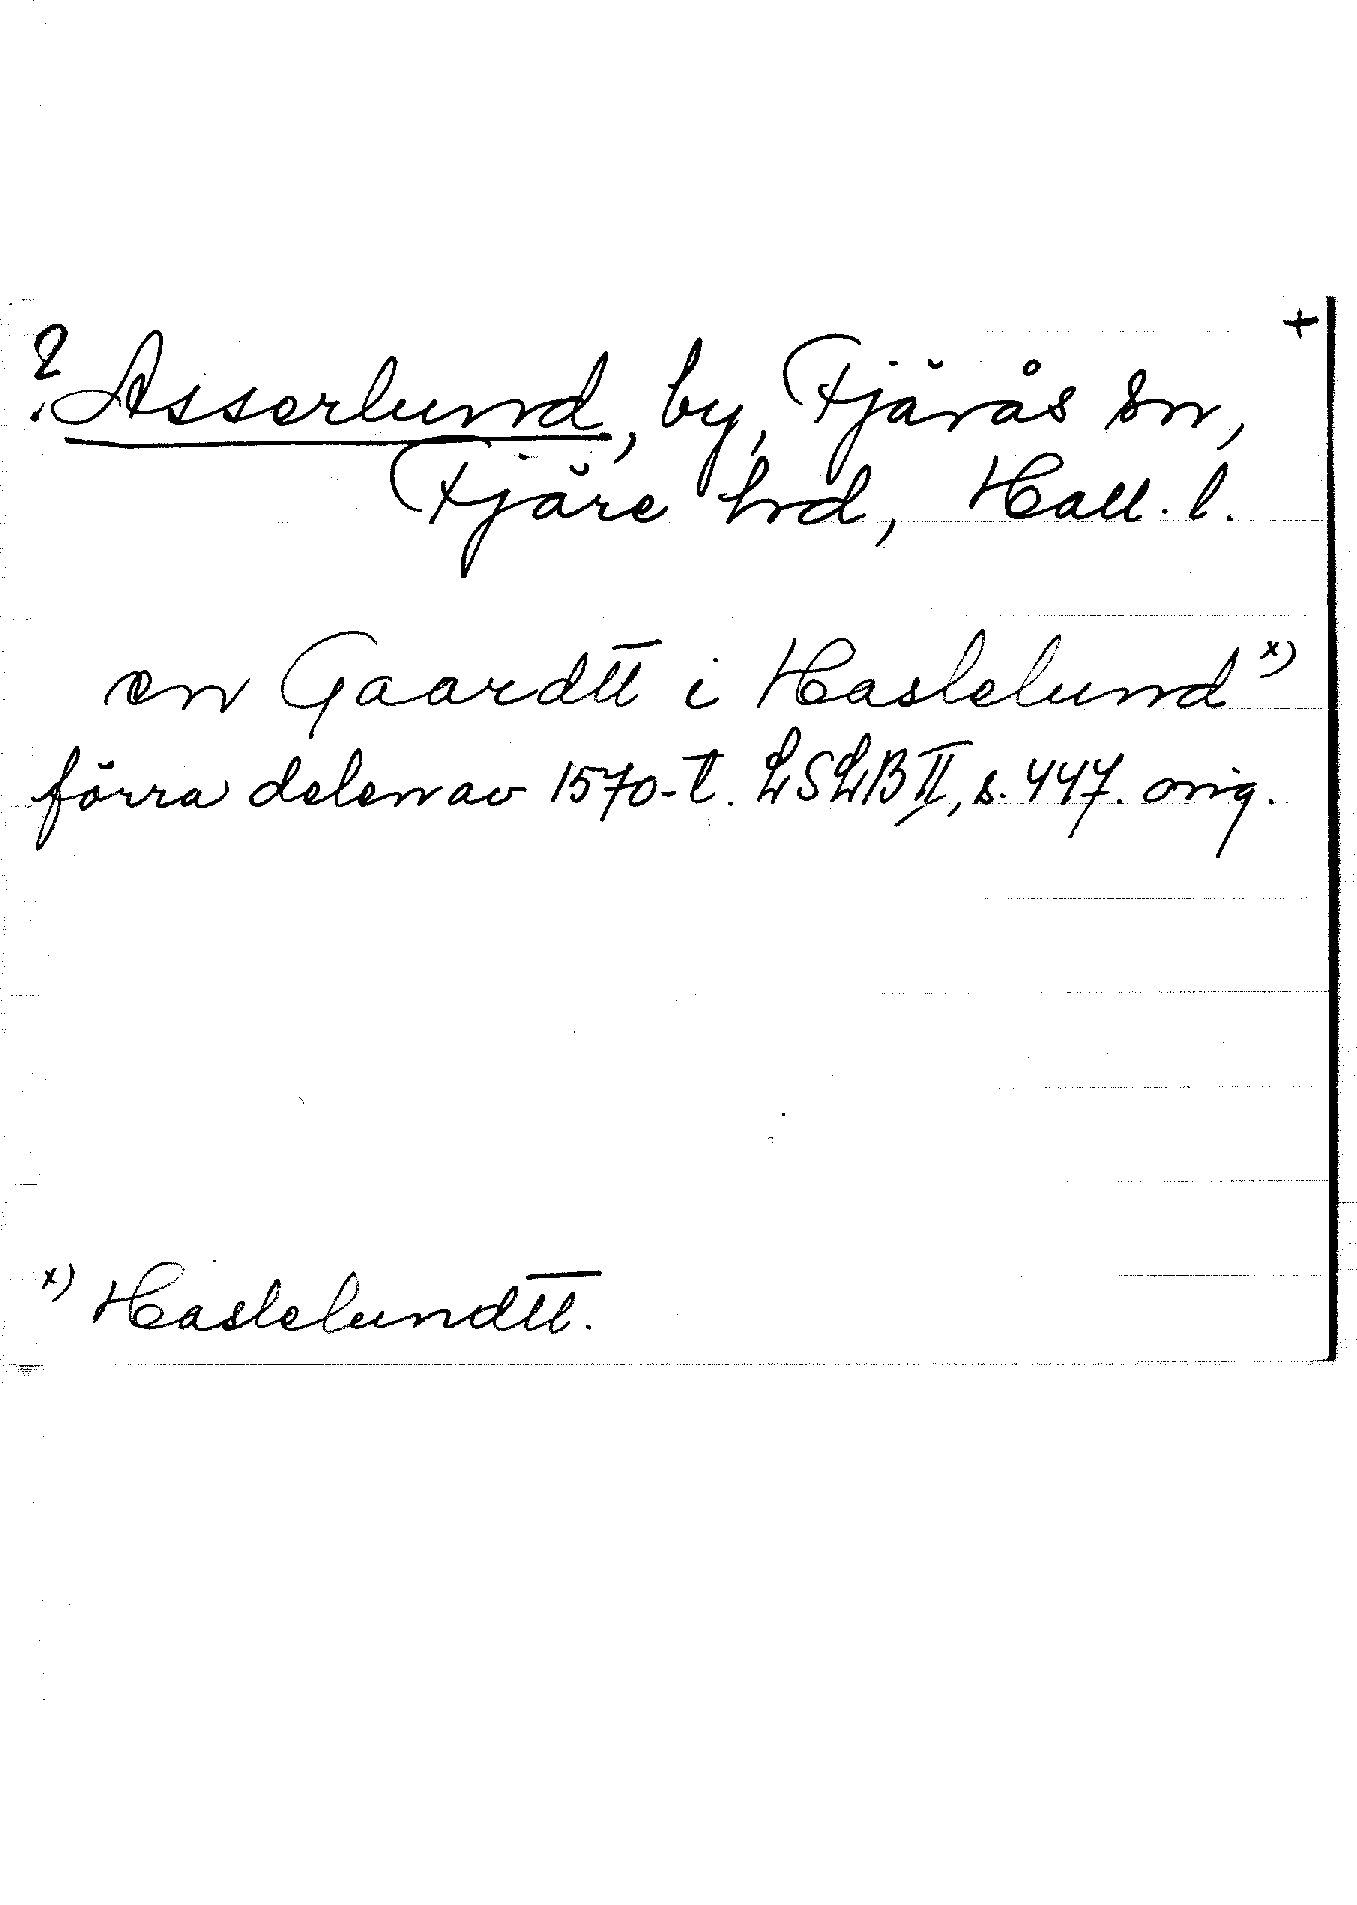 +
? Asserlund, by, Fjärås sn,
Fjäre hrd, Hall. l.
en Gaardtt i Haslelund x)
förra delen av 1570-t. LSLB II, s. 447. orig.
x) Haslelundtt.